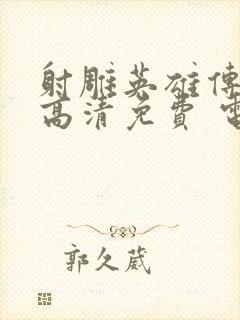 射雕英雄傳
高清免費 電
郭久葳